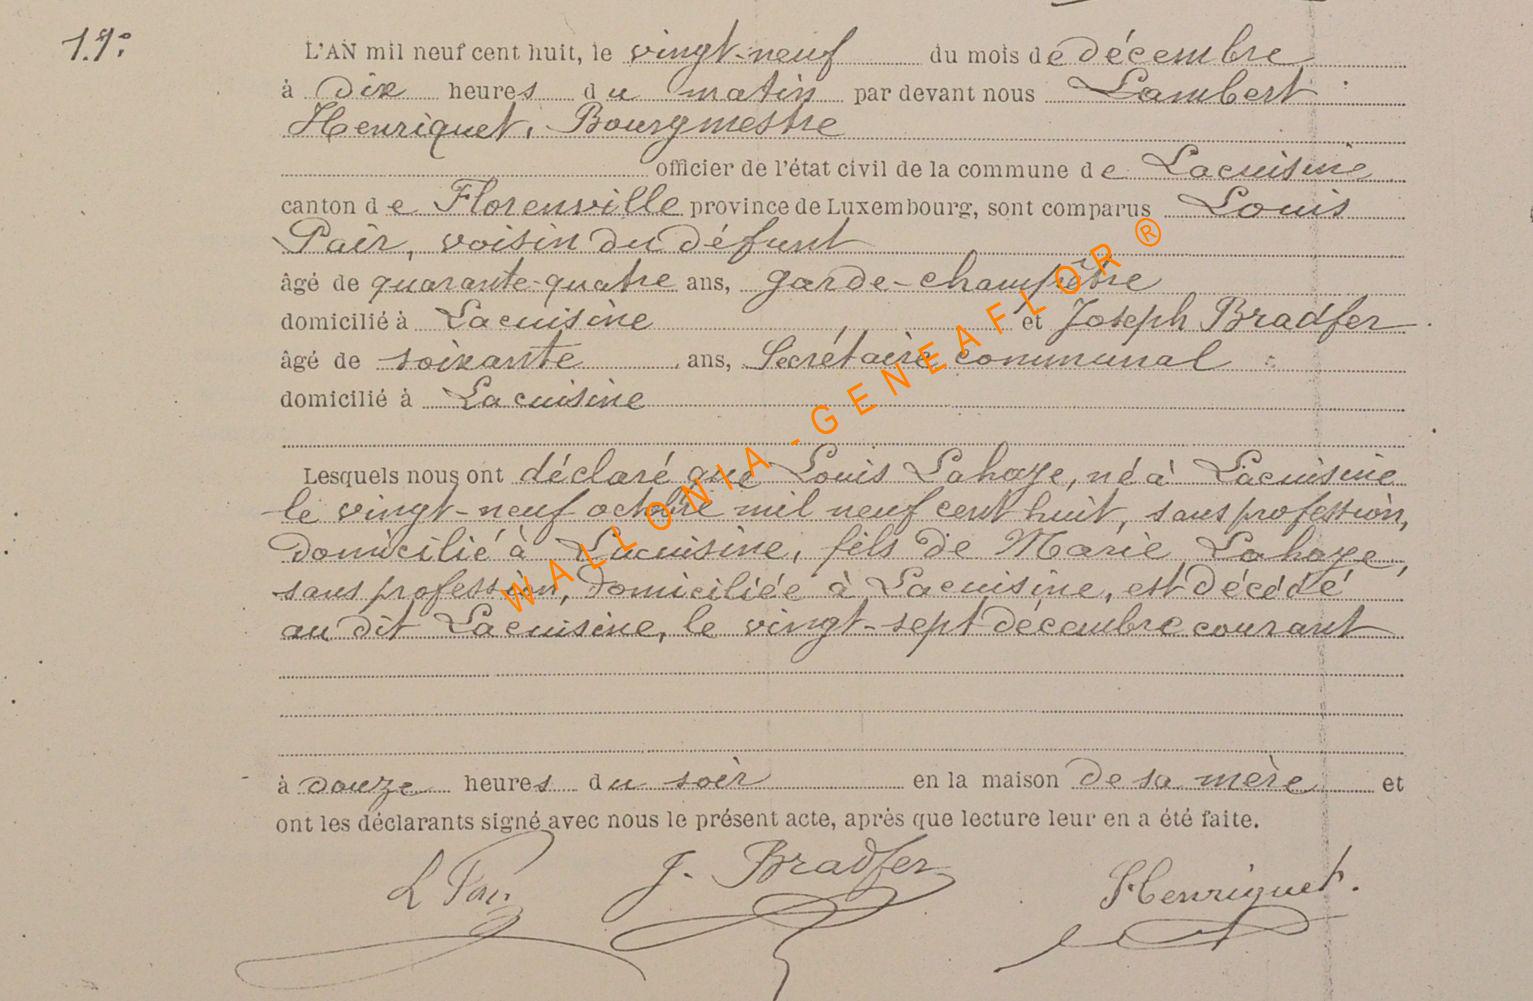 19°
L'AN mil neuf cent huit, le vingt-neuf du mois de décembre
à dix heures du matin par devant nous Lambert
Henriquet, Bourgmestre
officier de l'état civil de la commune de Lacuisine
canton de Florenville province de Luxembourg, sont comparus Louis
Pair, voisin du défunt
âgé de quarante-quatre ans, garde-champêtre
domicilié à Lacuisine et Joseph Bradfer
âgé de soixante ans, Secrétaire communal
domicilié à Lacuisine
Lesquels nous ont déclaré que Louis Lahaye, né à Lacuisine
le vingt-neuf octobre mil neuf cent huit, sans profession,
domicilié à Lacuisine, fils de Marie Lahaye,
sans profession, domiciliée à Lacuisine, est décédé
au dit Lacuisine, le vingt-sept décembre courant
à douze heures du soir en la maison de sa mère et
ont les déclarants signé avec nous le présent acte, après que lecture leur en a été faite.
L Pair J. Bradfer Henriquet.
WALLONIA-GENEAFLOR ®